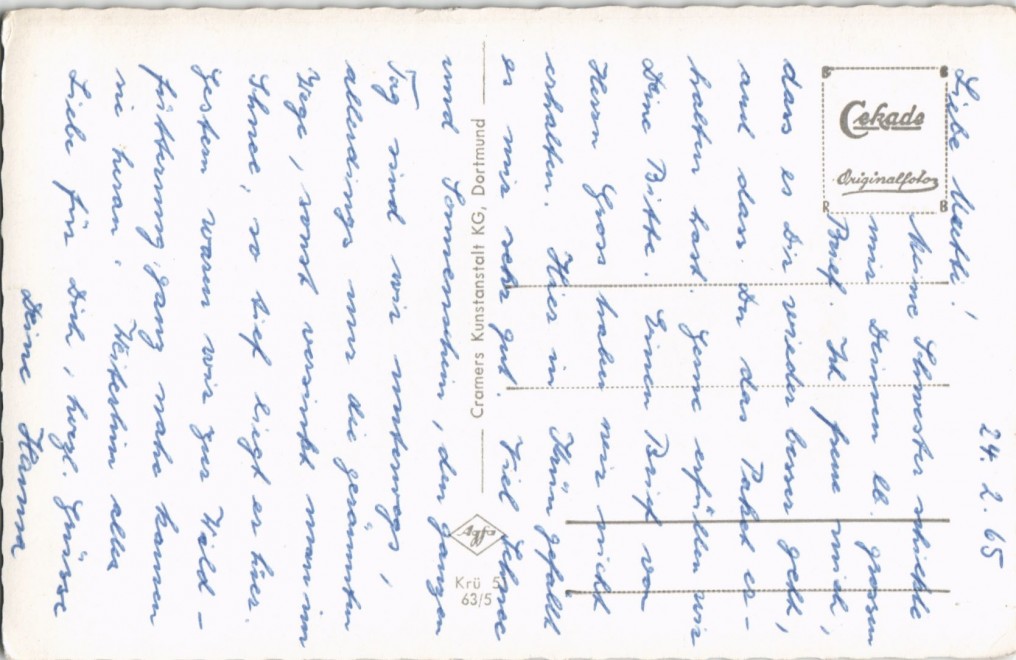 24. 2. 65
Liebe Mutti!
Meine Schwester schickte
mir Deinen lb. grossen
Brief. Ich freue mich,
dass es Dir wieder besser geht,
und dass Du das Paket er-
halten hast. Gerne erfüllen wir
Deine Bitte. Einen Brief von
Herrn Gross haben wir nicht
erhalten. Hier in Krün gefällt
es mir sehr gut. Viel Schnee
und Sonnenschein, den ganzen
Tag sind wir unterwegs,
allerdings nur die geräumten
Wege, sonst versinkt man im
Schnee, so tief liegt er hier.
Gestern waren wir zur Wild-
fütterung, ganz nahe kamen
sie heran. Weiterhin alles
Liebe für Dich, herzl. Grüsse
Deine Hanna
Cekade
Originalfoto
Cramers Kunstanstalt KG, Dortmund
Agfa
Krü 5
63/5